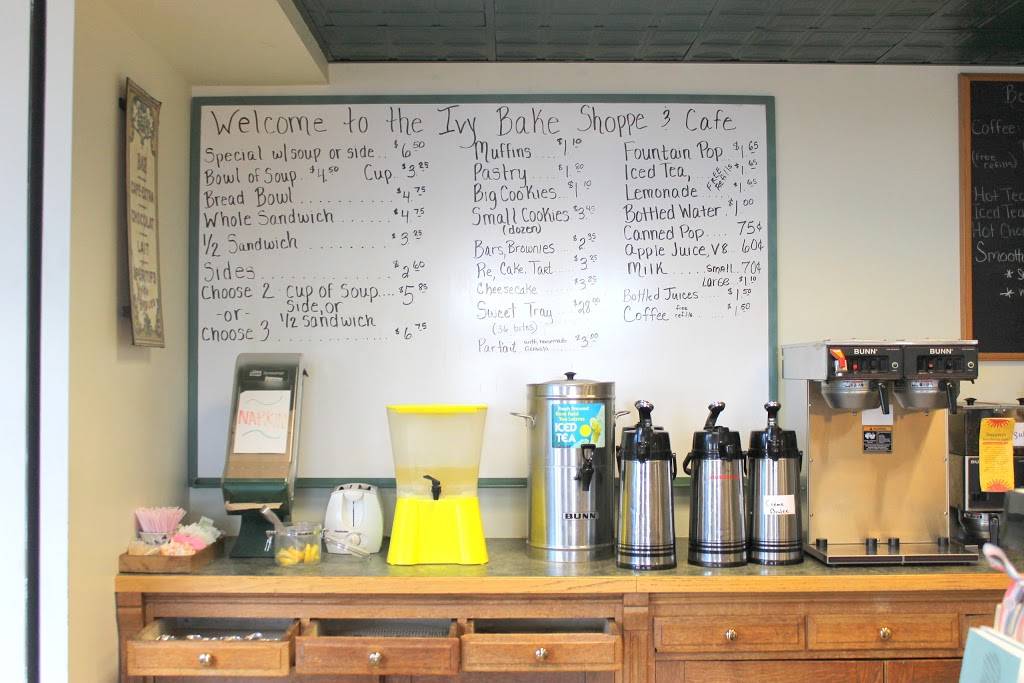 Welcome to the Ivy Bake Shoppe & Cafe
Special w/soup or side.. $6.50
Bowl of Soup. $4.50 Cup. $3.25
Bread Bowl ........ $4.75
Whole Sandwich ....... $4.75
1/2 Sandwich ......... $3.25
Sides ............... $2.60
Choose 2 Cup of Soup.... $5.85
-or- Side, or
Choose 3 1/2 Sandwich
$6.75
Muffins .... $1.10
Pastry .... $1.50
Big Cookies... $1.10
Small Cookies $3.45
(dozen)
Bars, Brownies ... $2.35
Pie, Cake, Tart... $3.25
Cheesecake .... $3.25
Sweet Tray ... $28.00
(36 bites)
Parfait with homemade Granola .... $3.00
Fountain Pop.. $1.65
Iced Tea, Free Refills $1.65
Lemonade $1.65
Bottled Water. $1.00
Canned Pop.... 75¢
Apple Juice, V8. 60¢
Milk ...... Small. 70¢
Large $1.10
Bottled Juices.... $1.50
Coffee free refills .... $1.50
BAR
CHOCOLAT
LAIT
APERITIFS
Coffee
(free refills)
Hot Tea
Iced Tea
Hot Choc
Smooth
NAPKIN
ICED
TEA
BUNN
BUNN
BUNN